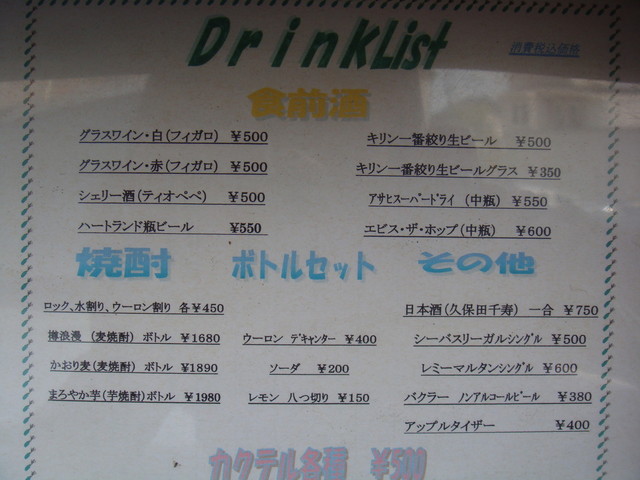 DrinKList
消費税込価格
食前酒
グラスワイン・白(フィガロ) ¥500
グラスワイン・赤(フィガロ) ¥500
シェリー酒(ティオペペ) ¥500
ハートランド瓶ビール ¥550
キリン一番絞り生ビール ¥500
キリン一番絞り生ビールグラス ¥350
アサヒスーパードライ (中瓶) ¥550
エビス・ザ・ホップ(中瓶) ¥600
焼酎
ロック、水割り、ウーロン割り 各¥450
樽浪漫 (麦焼酎) ボトル ¥1680
かおり麦(麦焼酎) ボトル ¥1890
まろやか芋(芋焼酎)ボトル ¥1980
ボトルセット
ウーロン デキャンター ¥400
ソーダ ¥200
レモン 八つ切り ¥150
その他
日本酒(久保田千寿) 一合 ¥750
シーバスリーガルシングル ¥500
レミーマルタンシングル ¥600
バクラー ノンアルコールビール ¥380
アップルタイザー ¥400
カクテル各種 ¥500